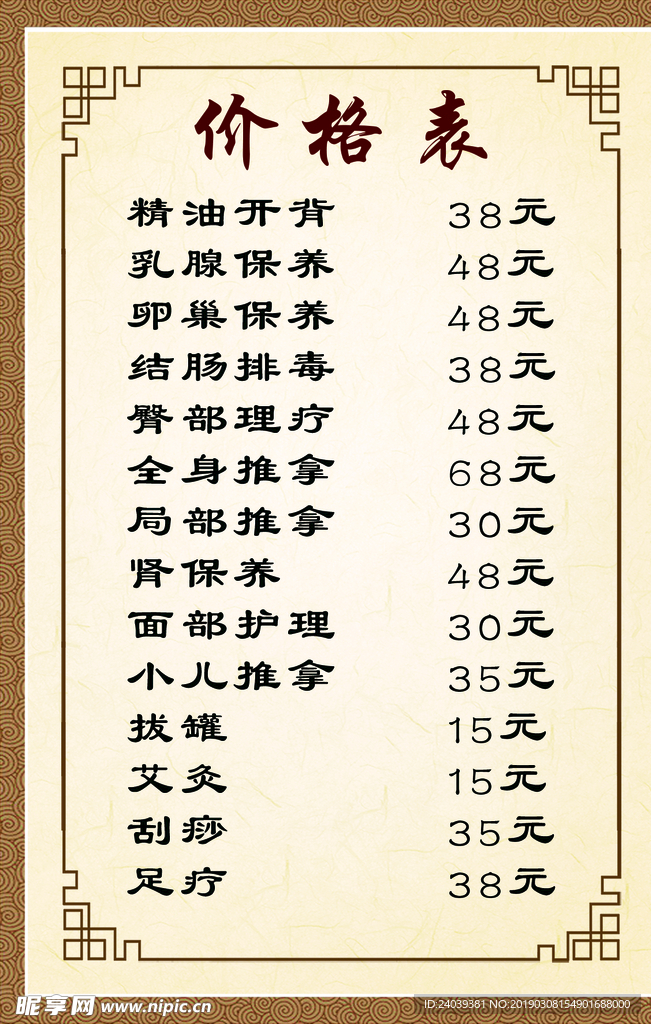 价格表
精油开背 38元
乳腺保养 48元
卵巢保养 48元
结肠排毒 38元
臀部理疗 48元
全身推拿 68元
局部推拿 30元
肾保养 48元
面部护理 30元
小儿推拿 35元
拔罐 15元
艾灸 15元
刮痧 35元
足疗 38元
昵享网 www.nipic.cn
ID:24039381 NO:20190308154901688000